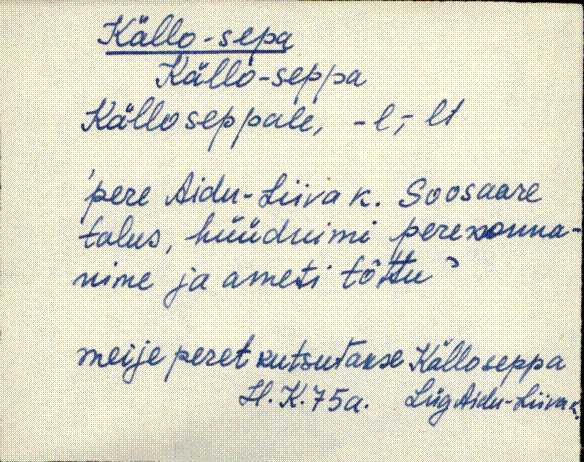 Källo-sepa
Källo-seppa
Källoseppale, -l, -lt
'pere Aidu-Liiva k. Soosaare
talus, hüüdnimi perekonna-
nime ja ameti tõttu'
meije peret kutsutakse Källoseppa
H.K. 75a. Lüg Aidu-Liiva k.